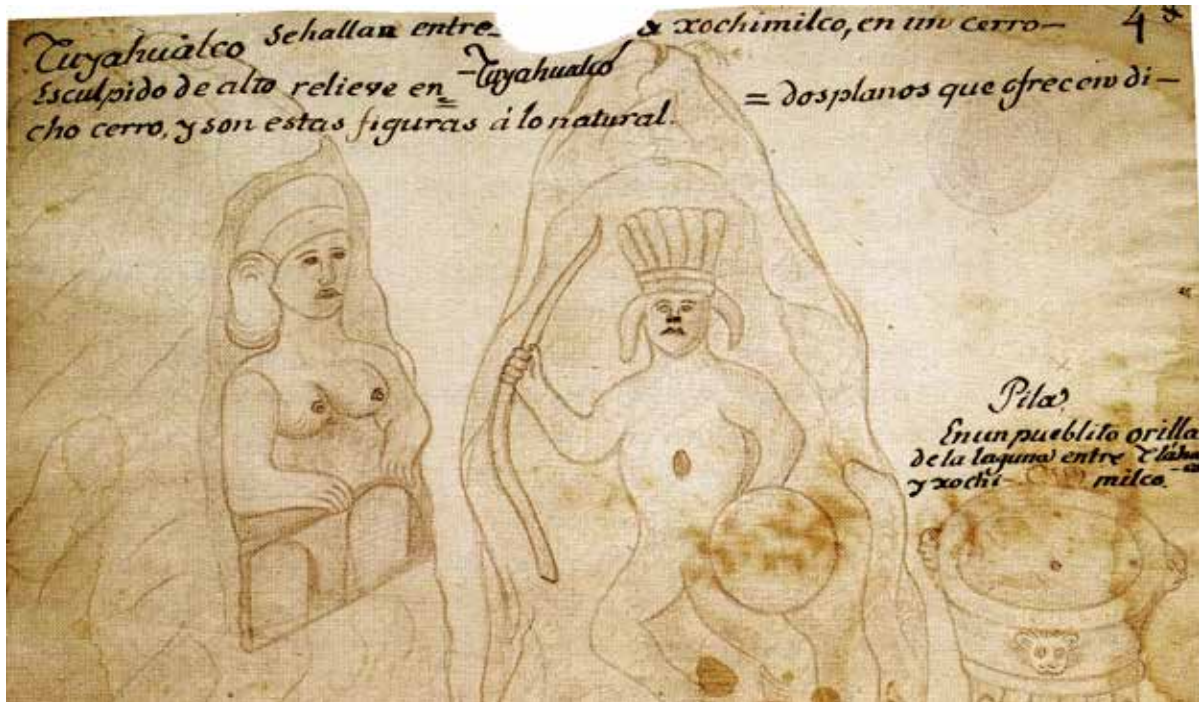 Tuyahualco Sehallan entre & xochimilco, en un cerro— 4
Esculpido de alto relieve en = Tuyahualco = dosplanos que ofrecen di—
cho cerro, y son estas figuras á lo natural.
Pila
En un pueblito orilla
de la laguna entre
y xochi- milco.